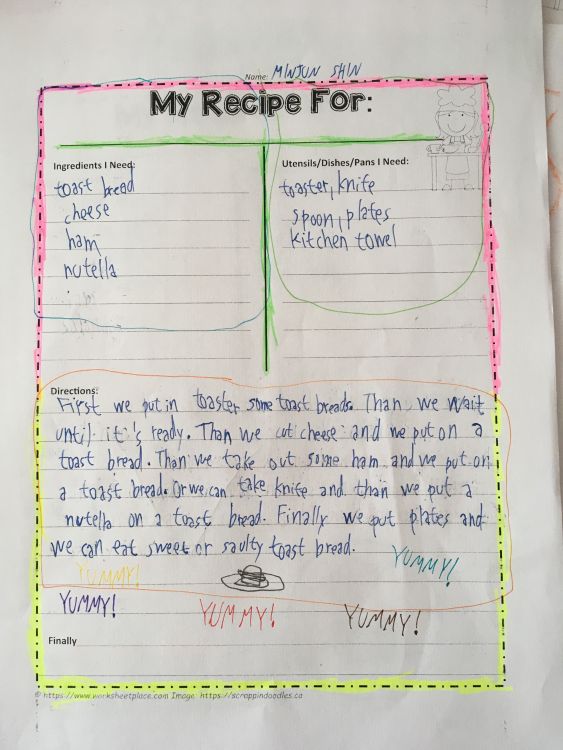 Name: MINJUN SHIN
My Recipe For:
Ingredients I Need:
toast bread
cheese
ham
nutella
Utensils/Dishes/Pans I Need:
toaster, knife
spoon, plates
kitchen towel
Directions:
First we put in toaster some toast breads. Than we wait
until it's ready. Than we cut cheese and we put on a
toast bread. Than we take out some ham and we put on
a toast bread. Or we can take knife and than we put a
nutella on a toast bread. Finally we put plates and
we can eat sweet or saulty toast bread.
YUMMY! YUMMY!
YUMMY! YUMMY! YUMMY!
Finally
© https://www.worksheetplace.com Image: https://scrappindoodles.ca